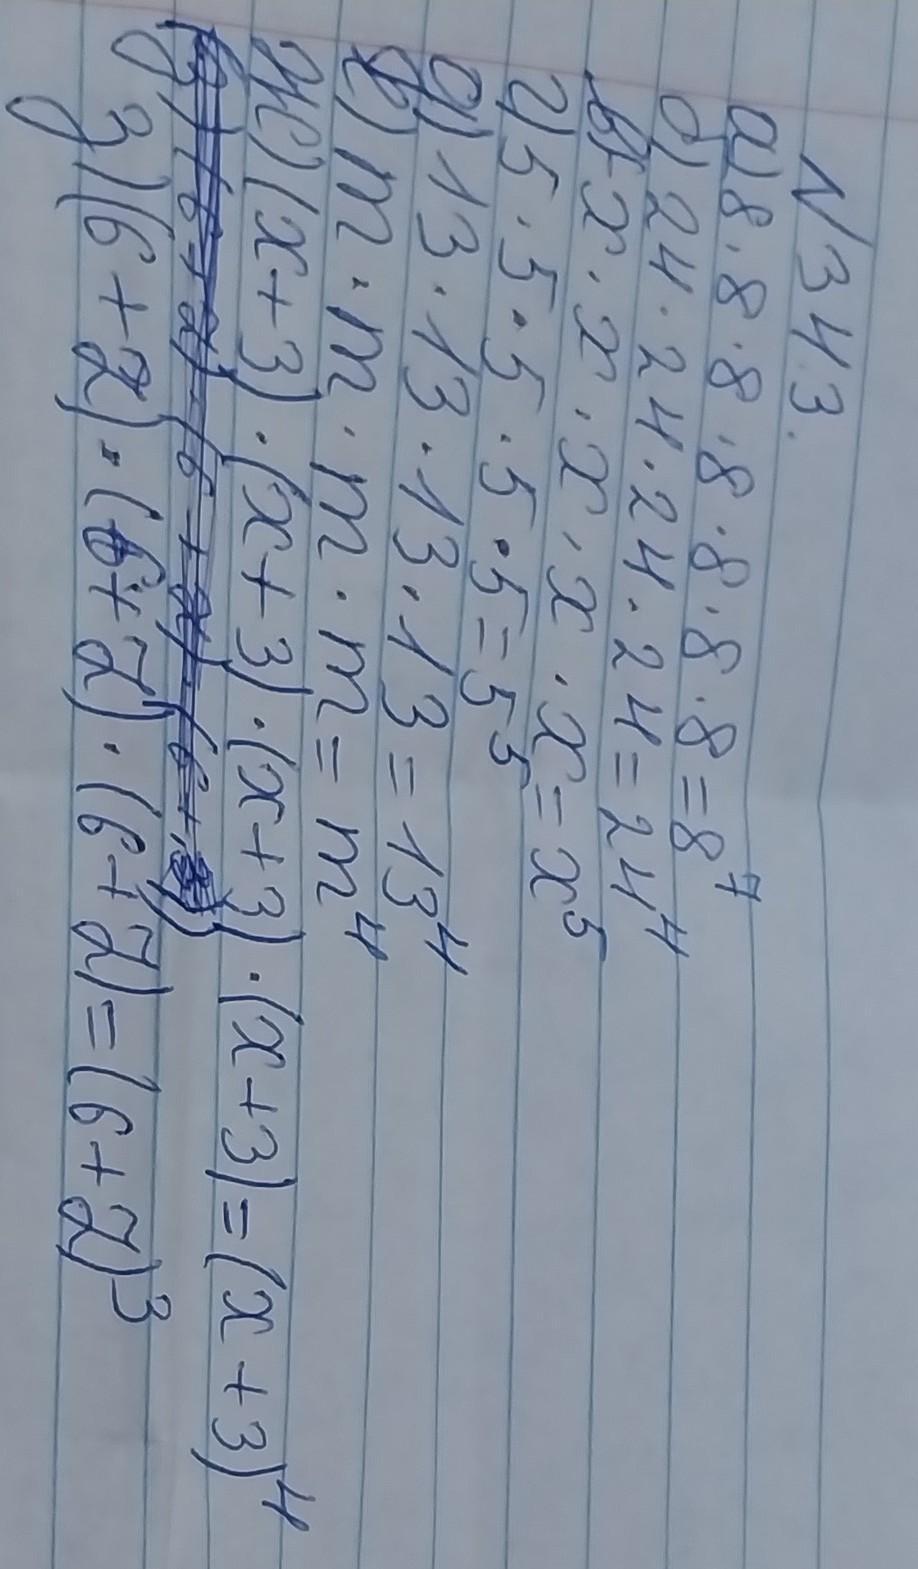 N343.
а) 8·8·8·8·8·8·8=8⁷
б) 24·24·24·24=24⁴
в) x·x·x·x·x=x⁵
г) 5·5·5·5·5=5⁵
д) 13·13·13·13=13⁴
е) m·m·m·m=m⁴
ж) (x+3)·(x+3)·(x+3)·(x+3)=(x+3)⁴
з) (6+2)·(6+2)·(6+2)=(6+2)³